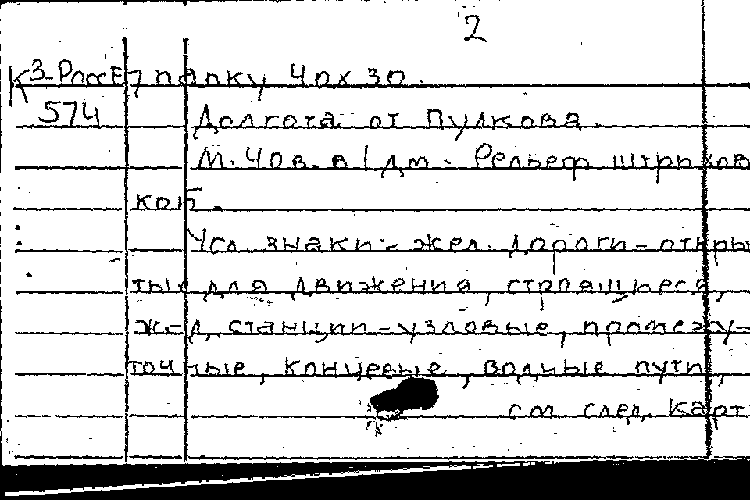 2
К3-Росс Е7 папку 40х30.
574 Долгота от Пулкова.
М. 40 в. в 1 дм. Рельеф штрихов
кой.
Усл. знаки:- жел. дороги-откры
тые для движения, строящиеся,
жел. станции-узловые, промежу-
точные, концевые, водные пути,
см. след. карт